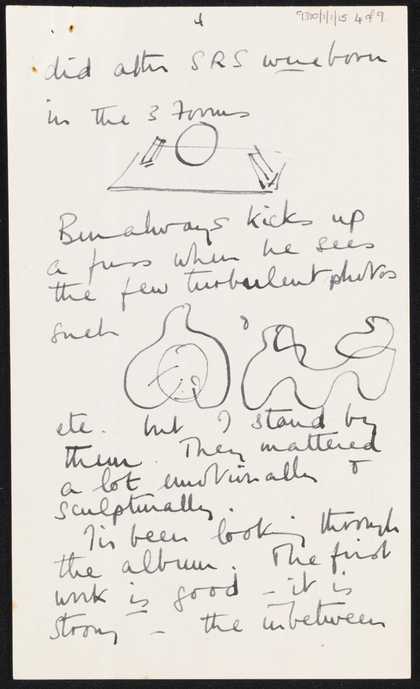 4
9310/1/1/15 4 of 9
did after SRS were born
in the 3 Forms
Ben always kicks up
a fuss when he sees
the few turbulent photos
such
&
etc. but I stand by
them. They mattered
a lot emotionally &
sculpturally.
I've been looking through
the album. The first
work is good – it is
strong – the inbetween